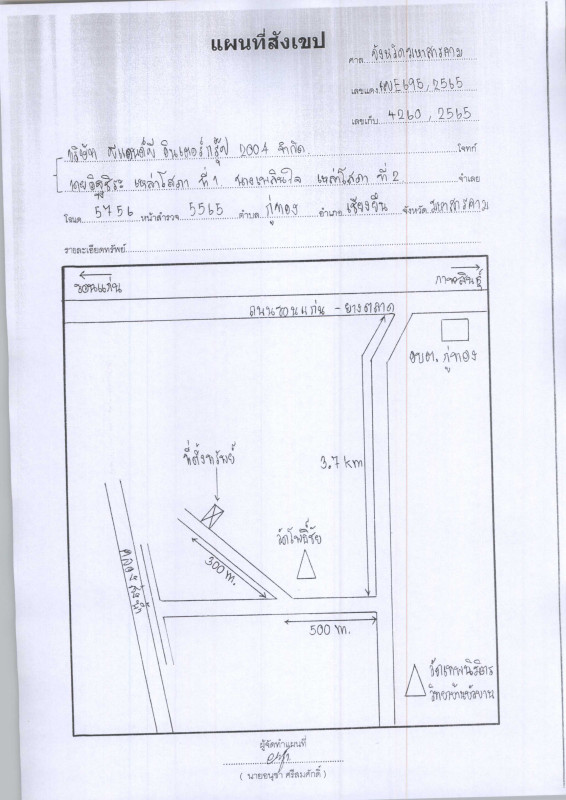 แผนที่สังเขป
ศาล จังหวัดมหาสารคาม
เลขแดง ผบE695/2565
เลขเก็บ 4260/2565
บริษัท พีแอนด์พี อินเตอร์กรุ๊ป 2004 จำกัด โจทก์
เหล่าโสภา ที่ 1 นางเพลินใจ เหล่าโสภา ที่ 2 จำเลย
โฉนด 5756 หน้าสำรวจ 5565 ตำบล กู่ทอง อำเภอ เชียงยืน จังหวัด มหาสารคาม
รายละเอียดทรัพย์
ขอนแก่น กาฬสินธุ์
ถนนขอนแก่น - ยางตลาด
อบต. กู่ทอง
ที่ตั้งทรัพย์
3.7 km
วัดโพธิ์ชัย
300 m.
คลองส่งน้ำ
500 m.
วัดเทพนิรมิตร
ผู้จัดทำแผนที่
( นายอนุชา ศรีสมศักดิ์ )